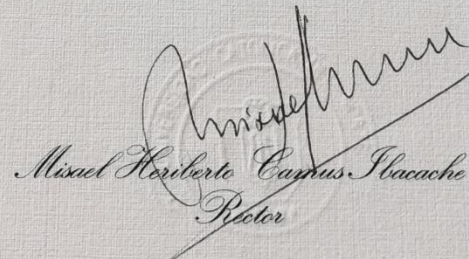 Misael Heriberto Camus Ibacache
Rector